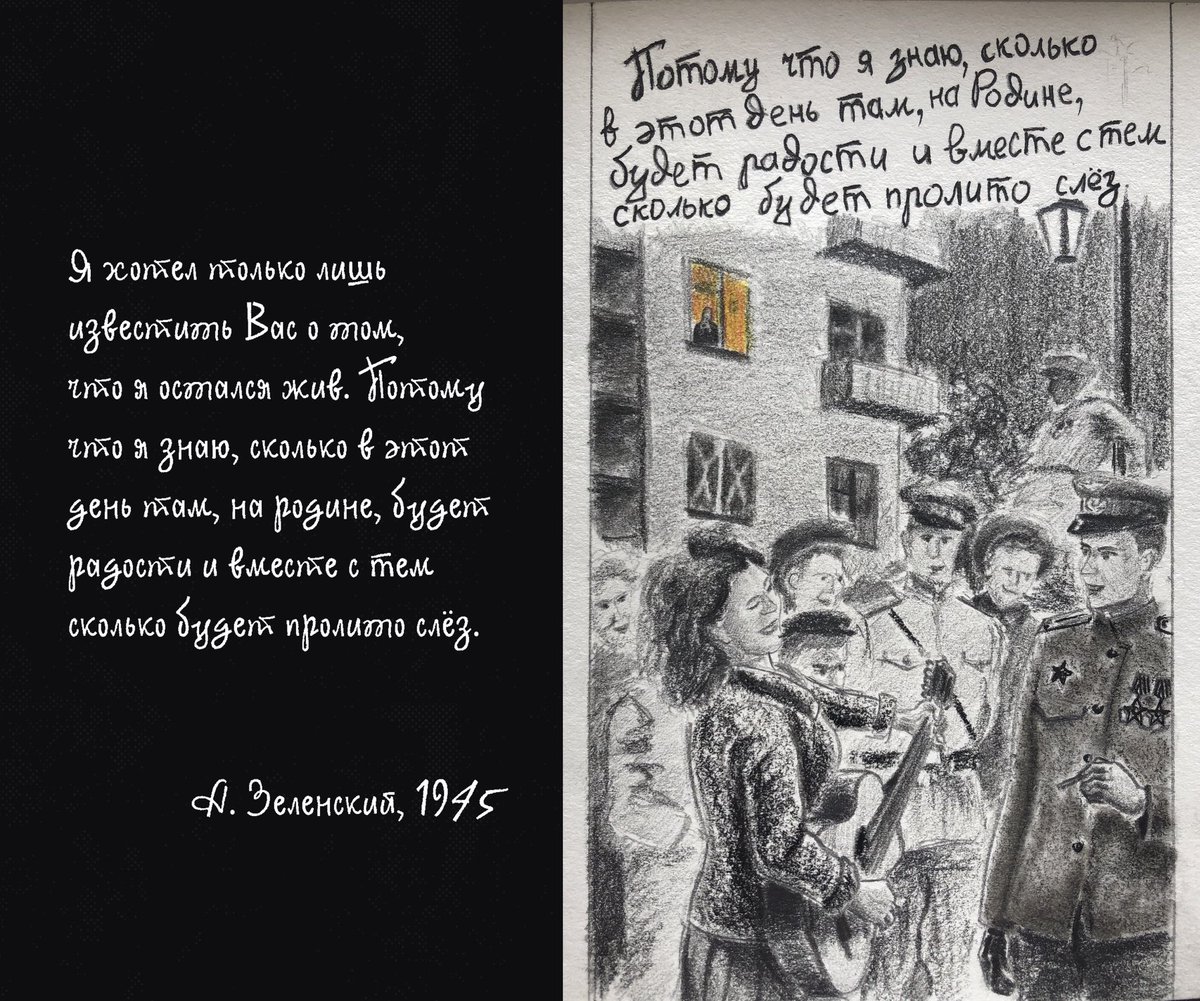 Я хотел только лишь
известить Вас о том,
что я остался жив. Потому
что я знаю, сколько в этот
день там, на родине, будет
радости и вместе с тем
сколько будет пролито слёз.
А. Зеленский, 1945
Потому что я знаю, сколько
в этот день там, на Родине,
будет радости и вместе с тем
сколько будет пролито слёз.